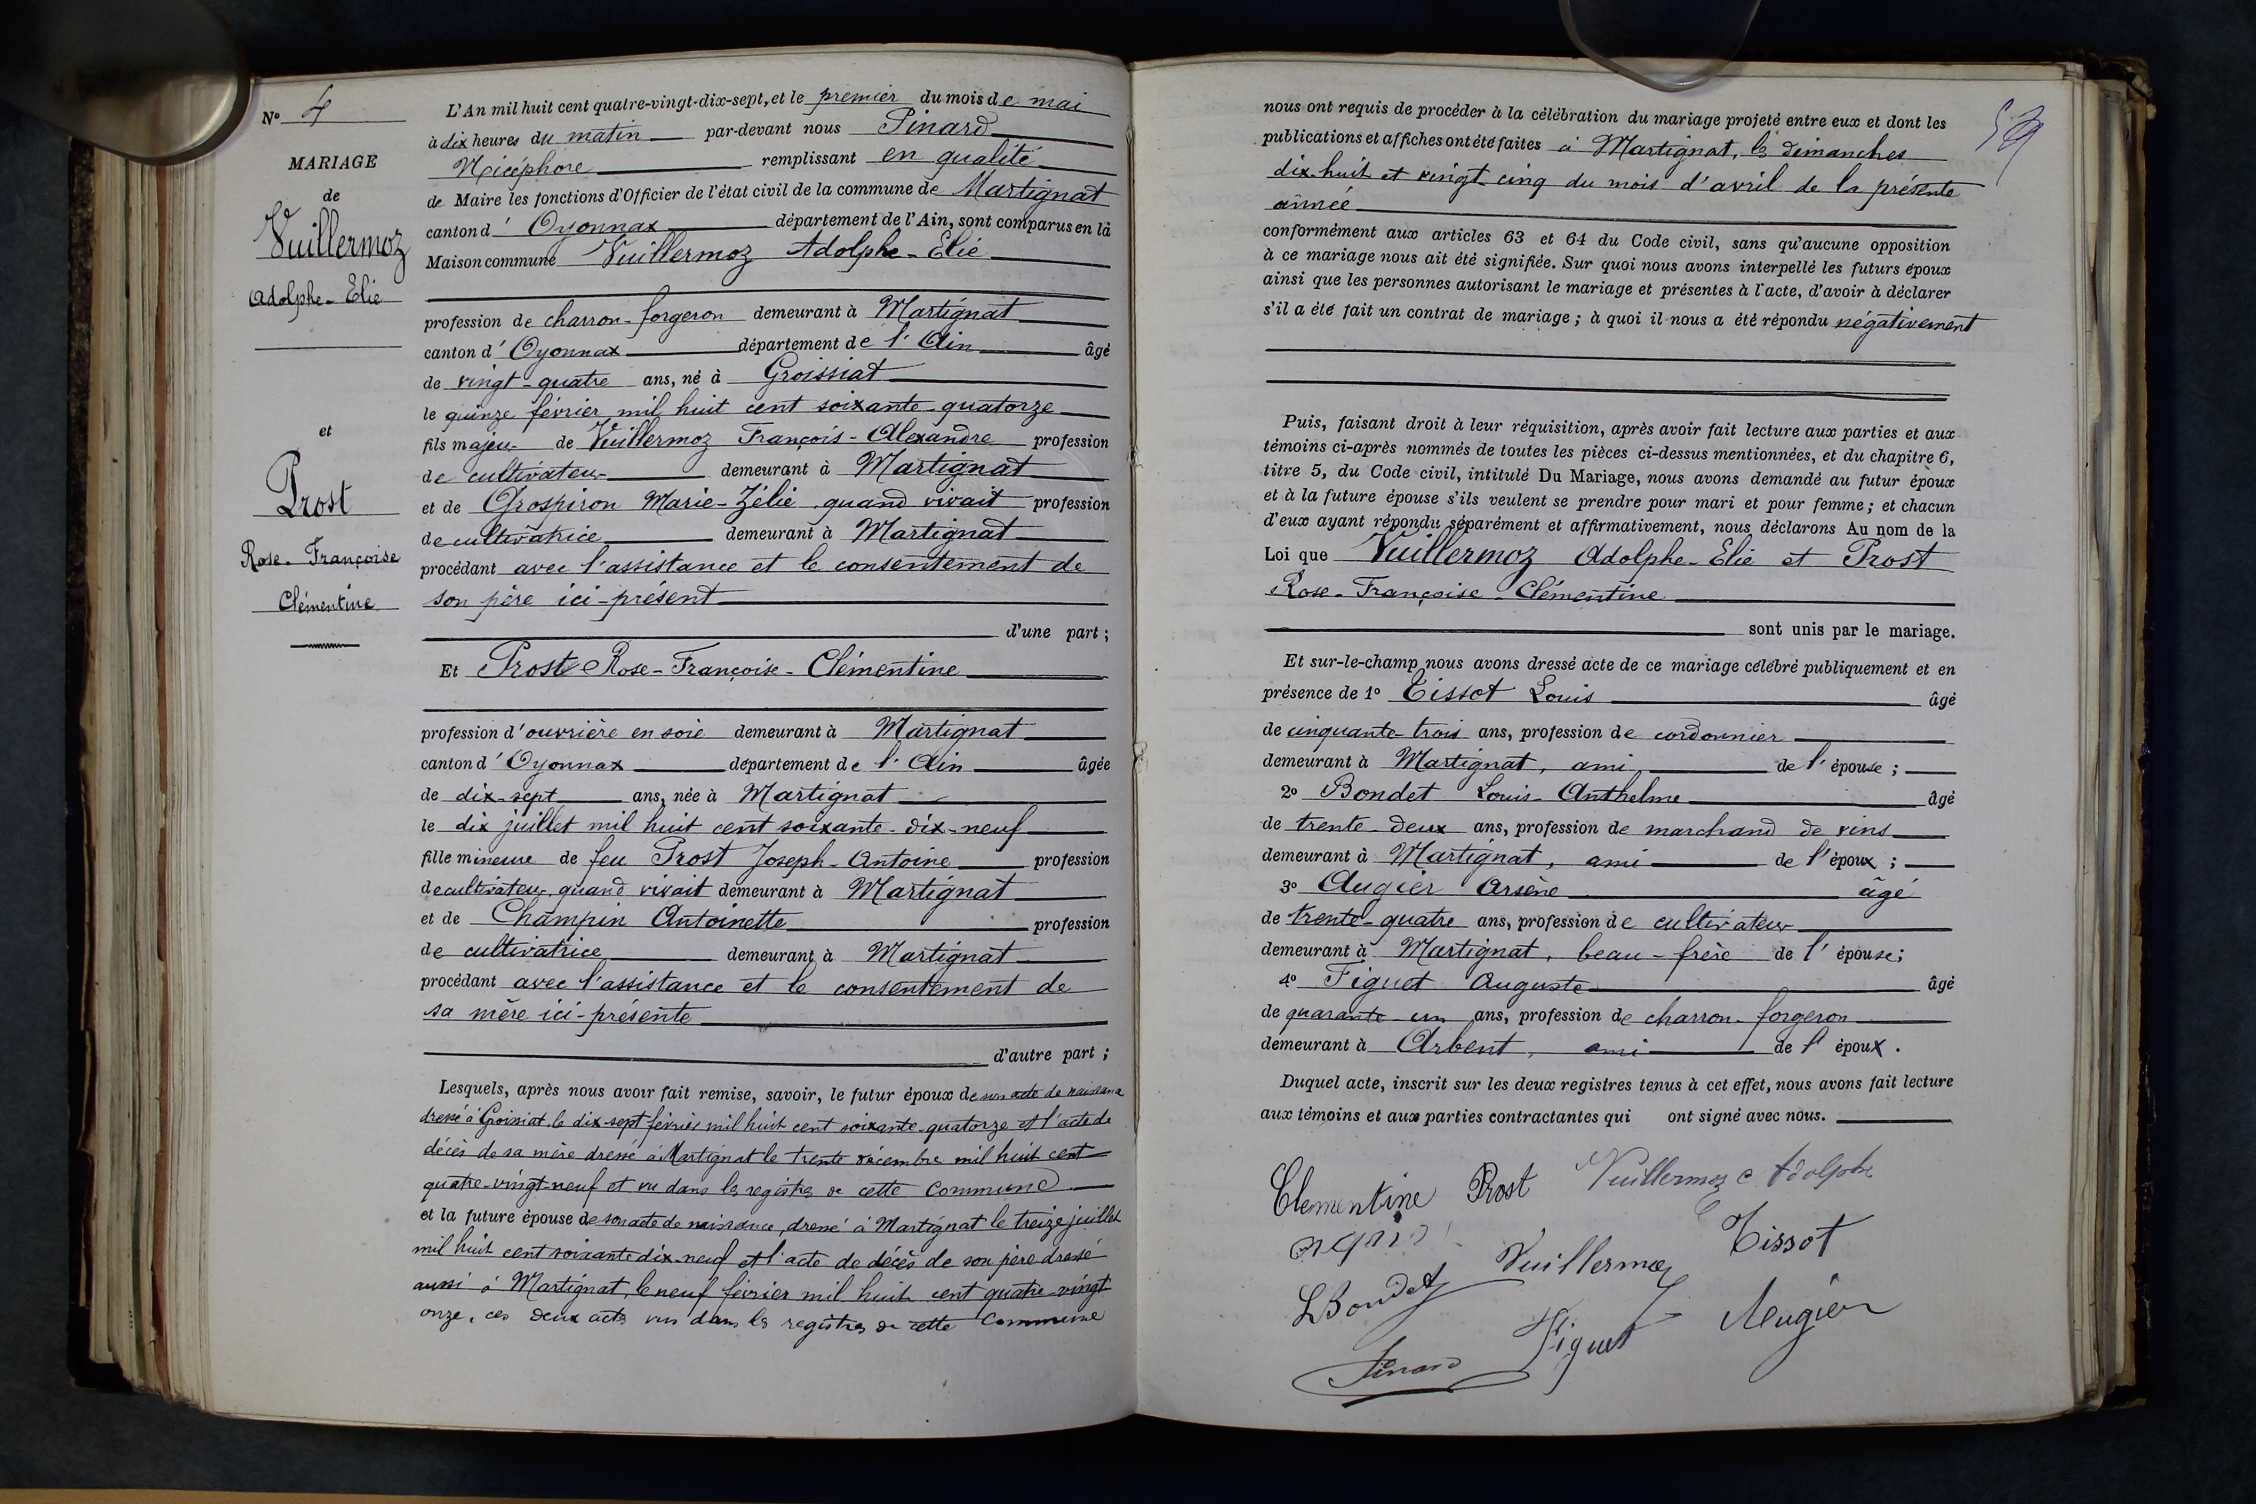 N° 4
MARIAGE
de
Vuillermoz
Adolphe-Elie
et
Prost
Rose-Françoise
Clémentine
L'An mil huit cent quatre-vingt-dix-sept, et le premier du mois de mai
à dix heures du matin par-devant nous Pinard
Nicéphore remplissant en qualité
de Maire les fonctions d'Officier de l'état civil de la commune de Martignat
canton d' Oyonnax département de l'Ain, sont comparus en là
Maison commune Vuillermoz Adolphe-Elie
profession de charron-forgeron demeurant à Martignat
canton d' Oyonnax département de l'Ain âgé
de vingt-quatre ans, né à Groissiat
le quinze février mil huit cent soixante-quatorze
fils majeur de Vuillermoz François-Alexandre profession
de cultivateur demeurant à Martignat
et de Grospiron Marie-Zélie quand vivait profession
de cultivatrice demeurant à Martignat
procédant avec l'assistance et le consentement de
son père ici-présent
d'une part ;
Et Prost Rose-Françoise-Clémentine
profession d'ouvrière en soie demeurant à Martignat
canton d' Oyonnax département de l'Ain âgée
de dix-sept ans, née à Martignat
le dix juillet mil huit cent soixante-dix-neuf
fille mineure de feu Prost Joseph-Antoine profession
de cultivateur quand vivait demeurant à Martignat
et de Champin Antoinette profession
de cultivatrice demeurant à Martignat
procédant avec l'assistance et le consentement de
sa mère ici-présente
d'autre part ;
Lesquels, après nous avoir fait remise, savoir, le futur époux de son acte de naissance
dressé à Groissiat le dix-sept février mil huit cent soixante-quatorze et l'acte de
décès de sa mère dressé à Martignat le trente décembre mil huit cent
quatre-vingt-neuf et vu dans les registres de cette commune
et la future épouse de son acte de naissance, dressé à Martignat le treize juillet
mil huit cent soixante dix-neuf et l'acte de décès de son père dressé
aussi à Martignat, le neuf février mil huit cent quatre-vingt
onze, ces deux actes vus dans les registres de cette commune
59
nous ont requis de procéder à la célébration du mariage projeté entre eux et dont les
publications et affiches ont été faites à Martignat, les dimanches
dix-huit et vingt-cinq du mois d'avril de la présente
année
conformément aux articles 63 et 64 du Code civil, sans qu'aucune opposition
à ce mariage nous ait été signifiée. Sur quoi nous avons interpellé les futurs époux
ainsi que les personnes autorisant le mariage et présentes à l'acte, d'avoir à déclarer
s'il a été fait un contrat de mariage ; à quoi il nous a été répondu négativement
Puis, faisant droit à leur réquisition, après avoir fait lecture aux parties et aux
témoins ci-après nommés de toutes les pièces ci-dessus mentionnées, et du chapitre 6,
titre 5, du Code civil, intitulé Du Mariage, nous avons demandé au futur époux
et à la future épouse s'ils veulent se prendre pour mari et pour femme ; et chacun
d'eux ayant répondu séparément et affirmativement, nous déclarons Au nom de la
Loi que Vuillermoz Adolphe-Elie et Prost
Rose-Françoise-Clémentine
sont unis par le mariage.
Et sur-le-champ nous avons dressé acte de ce mariage célébré publiquement et en
présence de 1° Tissot Louis âgé
de cinquante-trois ans, profession de cordonnier
demeurant à Martignat, ami de l'épouse ;
2° Bondet Louis-Anthelme âgé
de trente-deux ans, profession de marchand de vins
demeurant à Martignat, ami de l'époux ;
3° Augier Arsène âgé
de trente-quatre ans, profession de cultivateur
demeurant à Martignat, beau-frère de l'épouse ;
4° Figuet Auguste âgé
de quarante-un ans, profession de charron-forgeron
demeurant à Arbent, ami de l'époux.
Duquel acte, inscrit sur les deux registres tenus à cet effet, nous avons fait lecture
aux témoins et aux parties contractantes qui ont signé avec nous.
Clementine Prost Vuillermoz Adolphe
Vuillermoz Tissot
LBondet Figuet Augier
Pinard